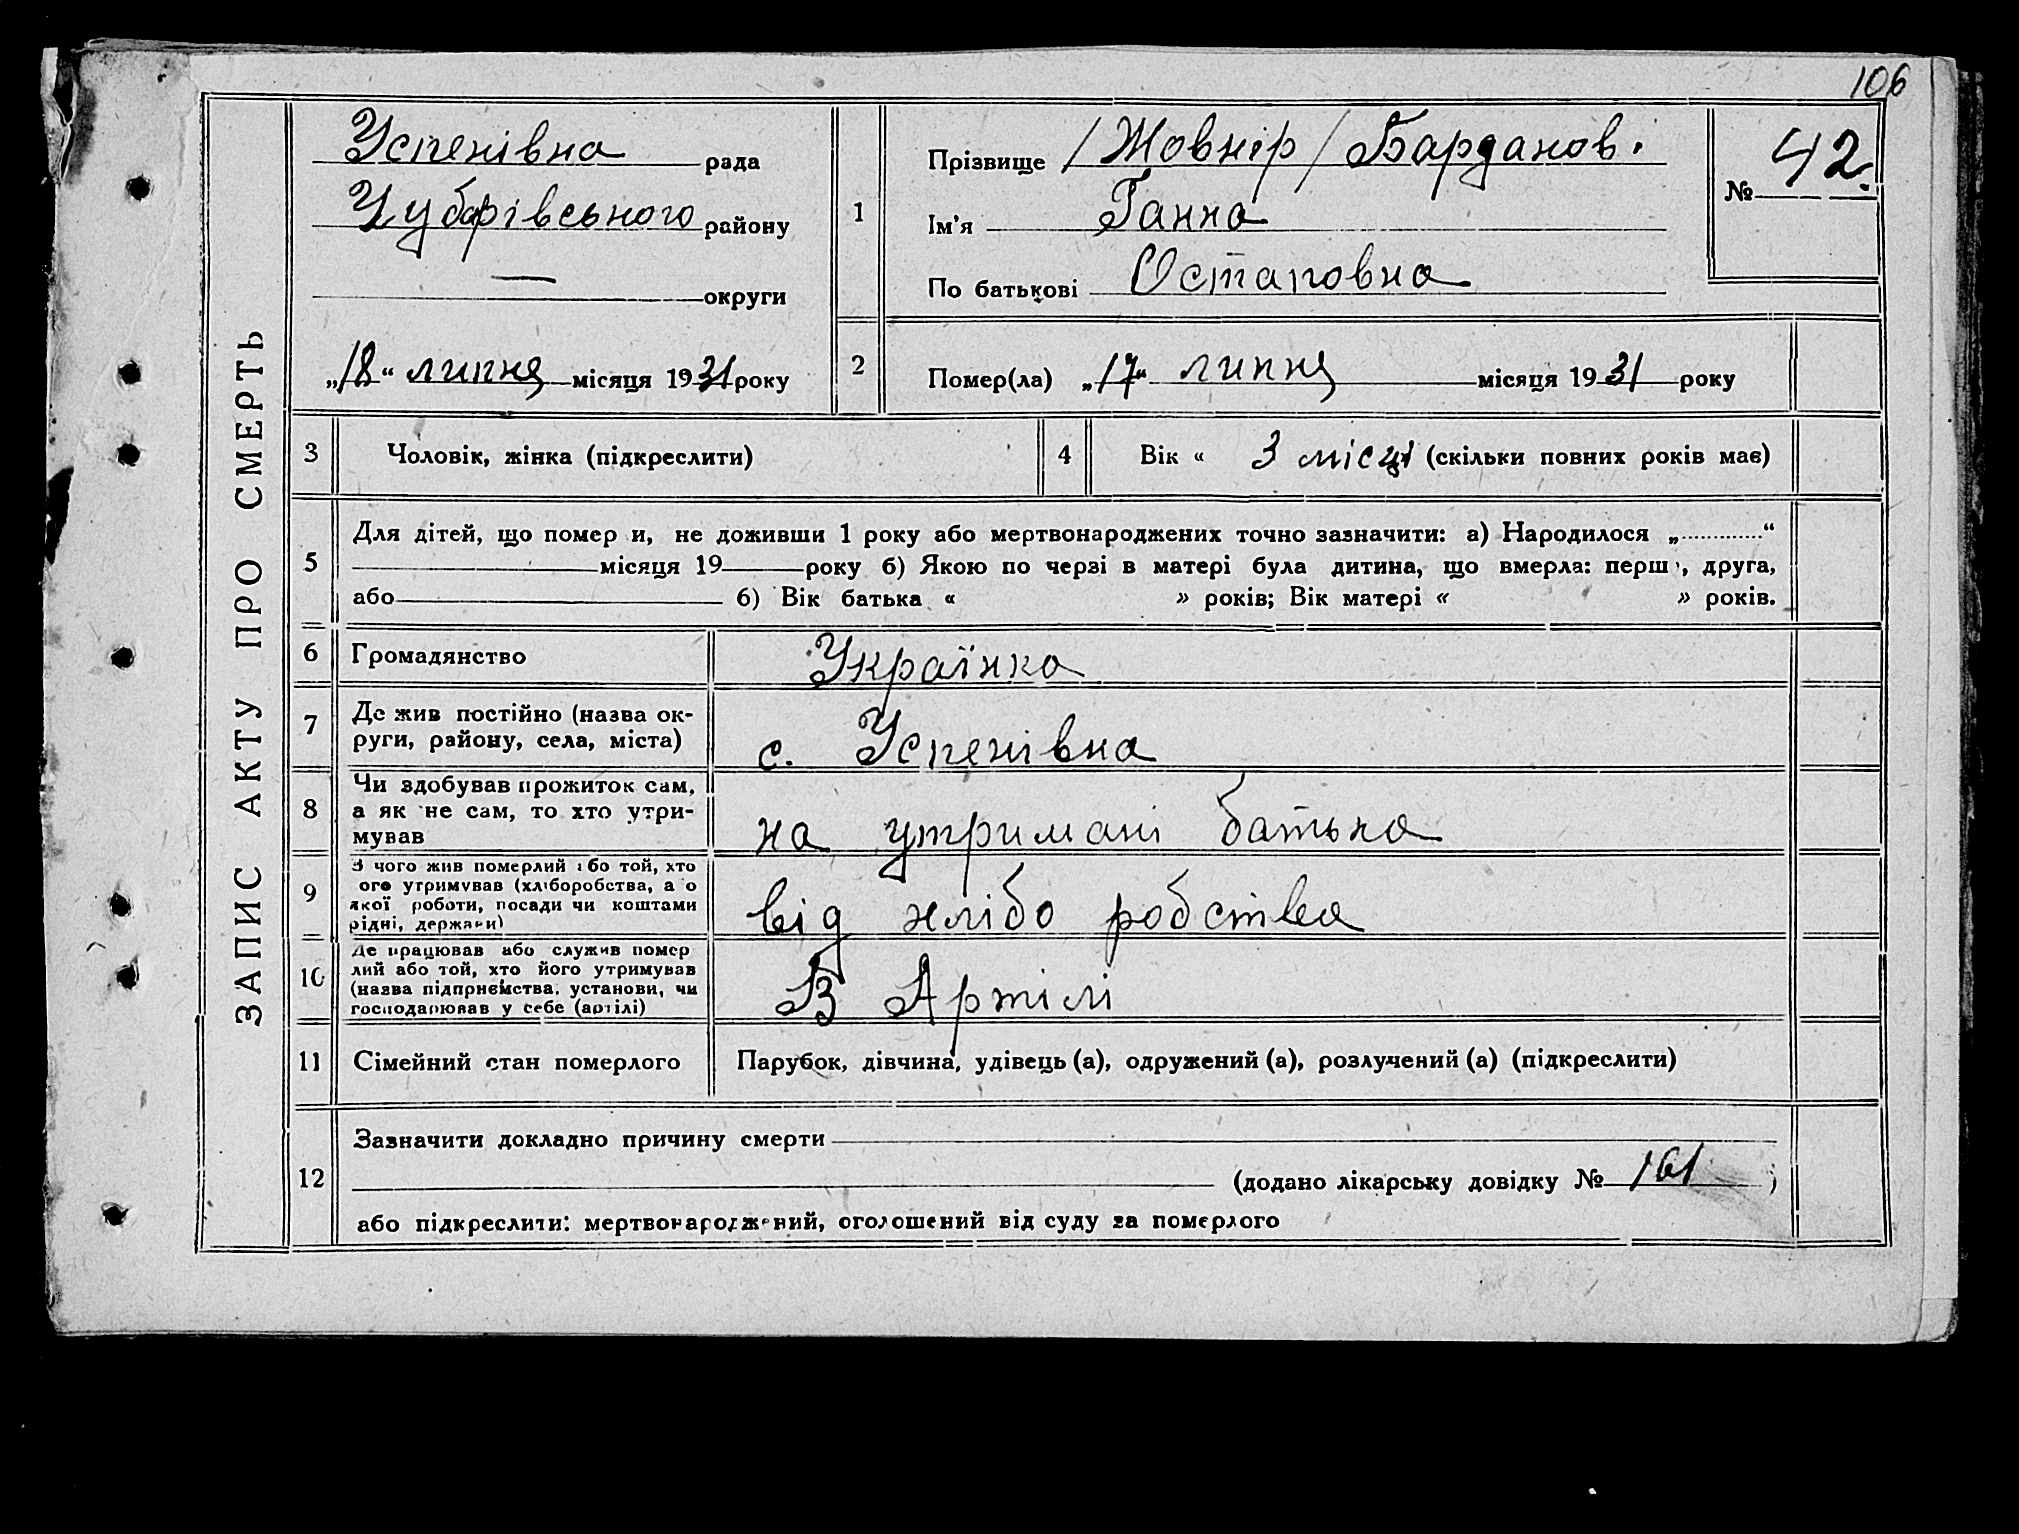 106
ЗАПИС АКТУ ПРО СМЕРТЬ
Успенівна рада
Чубарівського району
— округи
„18“ липня місяця 1931 року
1
Прізвище /Жовнір/ Барданов.
Ім'я Ганна
По батькові Остаповна
№ 42.
2
Помер(ла) „17“ липня місяця 1931 року
3 Чоловік, жінка (підкреслити)
4 Вік « 3 місці (скільки повних років має)
5
Для дітей, що помер и, не доживши 1 року або мертвонароджених точно зазначити: а) Народилося „ “
місяця 19 року б) Якою по черзі в матері була дитина, що вмерла: перш , друга,
або б) Вік батька « » років; Вік матері « » років.
6 Громадянство Українка
7 Де жив постійно (назва ок-
руги, району, села, міста) с. Успенівна
8 Чи здобував прожиток сам,
а як не сам, то хто утри-
мував на утримані батька
9 З чого жив померлий або той, хто
ого утримував (хліборобства, а о
якої роботи, посади чи коштами
рідні, держави) від хлібо робства
10 Де працював або служив помер
лий або той, хто його утримував
(назва підприємства, установи, чи
господарював у себе (артілі) В Артілі
11 Сімейний стан померлого Парубок, дівчина, удівець (а), одружений (а), розлучений (а) (підкреслити)
12
Зазначити докладно причину смерти
(додано лікарську довідку № 161 )
або підкреслити: мертвонароджений, оголошений від суду за померлого